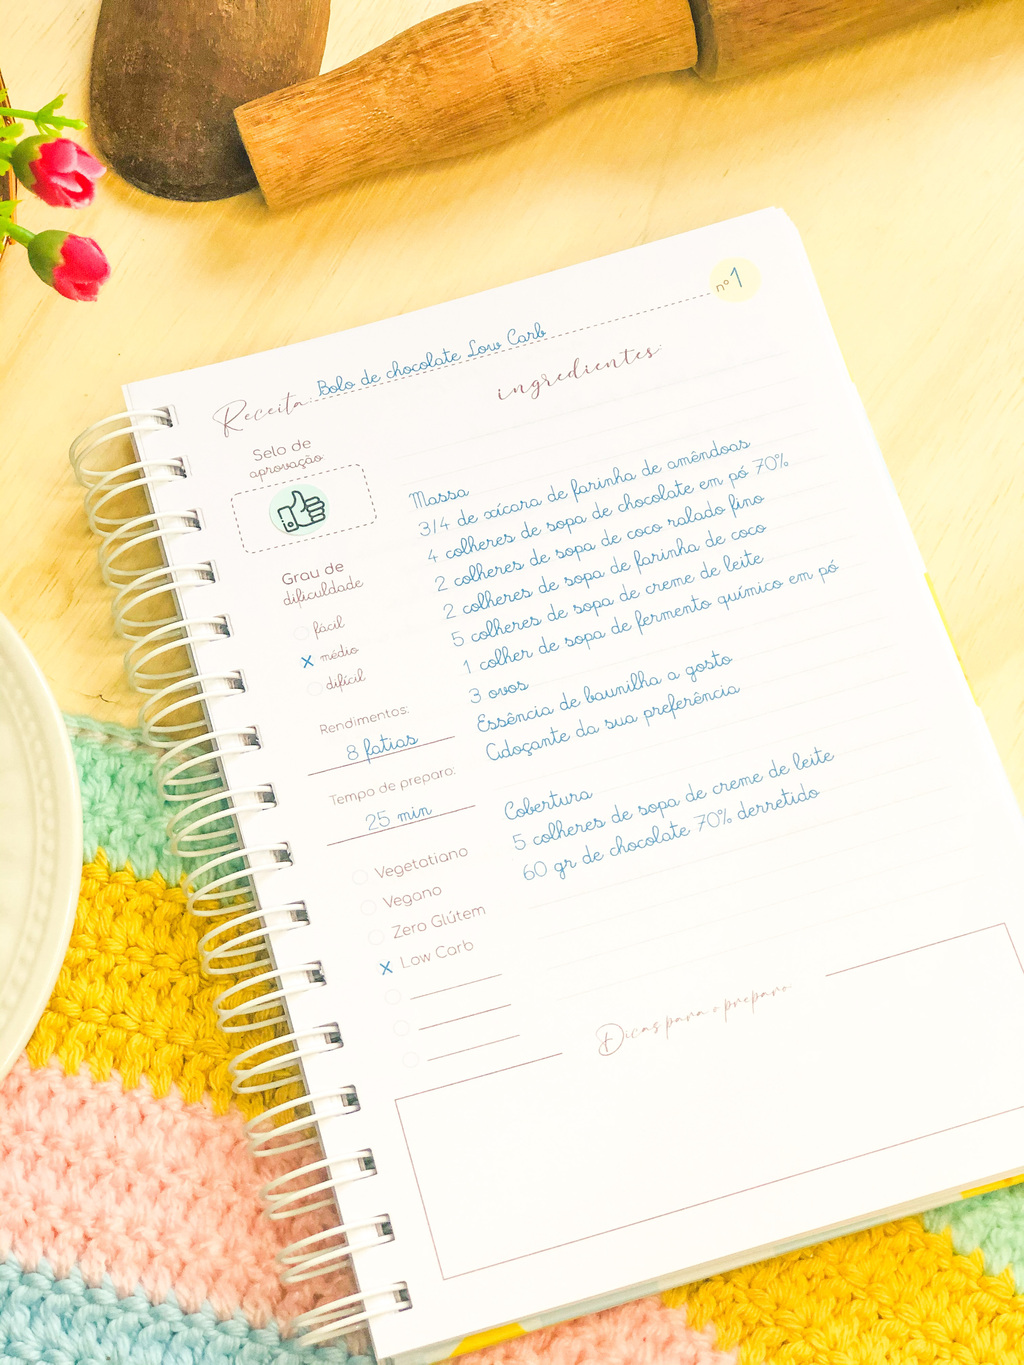 nº 1
Receita: Bolo de chocolate Low Carb
ingredientes:
Selo de
aprovação:
Massa
3/4 de xícara de farinha de amêndoas
4 colheres de sopa de chocolate em pó 70%
2 colheres de sopa de coco ralado fino
2 colheres de sopa de farinha de coco
5 colheres de sopa de creme de leite
1 colher de sopa de fermento químico em pó
3 ovos
Essência de baunilha a gosto
Adoçante da sua preferência
Cobertura
5 colheres de sopa de creme de leite
60 gr de chocolate 70% derretido
Grau de
dificuldade
fácil
X médio
difícil
Rendimentos:
8 fatias
Tempo de preparo:
25 min
Vegetatiano
Vegano
Zero Glútem
X Low Carb
Dicas para o preparo: